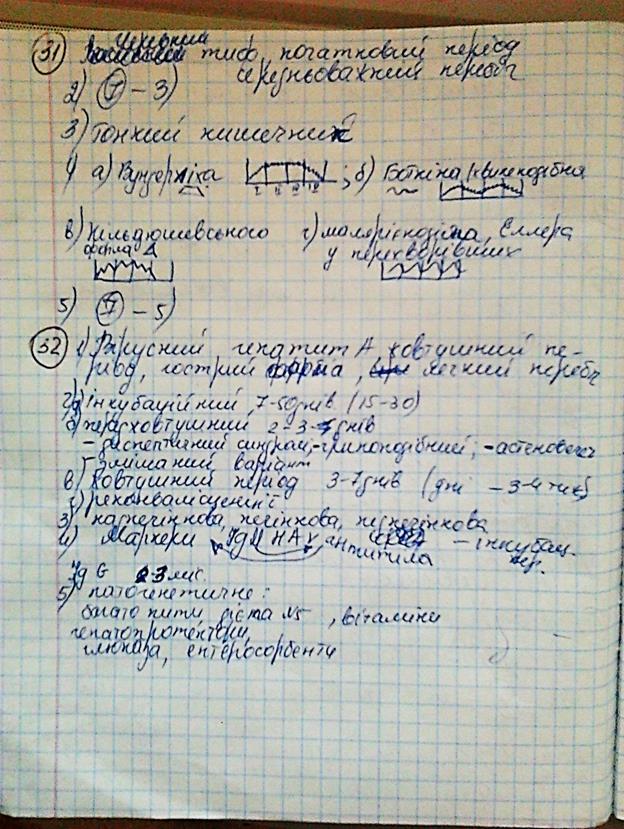 31) Черевний тиф, початковий період
середньоважкий перебіг
2) I – 3)
3) Тонкий кишечник
4) а) Вундерліха ; б) Боткіна хвилеподібна
I II III IV
в) Кільдюшевського г) малярієподібна, Еллера
у перехворівших
5) I – 5)
32) 1) Вірусний гепатит А, жовтушний пе-
ріод, гострий форма, легкий перебіг
2) а) інкубаційний, 7-50днів (15-30)
б) переджовтушний 2-3-7днів
– диспептичний синдром, – грипоподібний, – астеновегет
– змішаний варіант
в) жовтушний період 3-7днів (дні – 3-4 тиж)
г) реконвалісценції
3) надпечінкова, печінкова, підпечінкова
4) Маркери Ig M HAV антитіла – інкубац.
пер.
Ig G 2-3 міс.
5) патогенетичне:
багато пити дієта №5, вітаміни
гепатопротектори,
глюкоза, ентеросорбенти